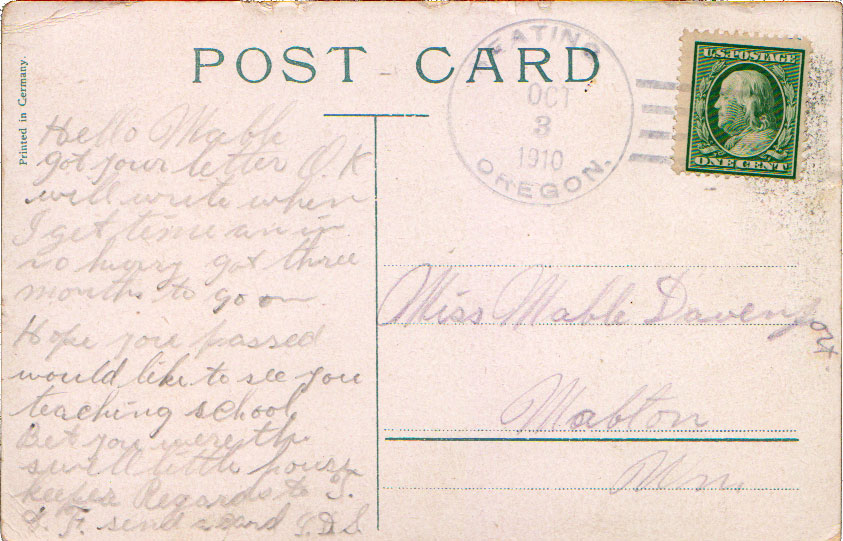 POST CARD
Printed in Germany.
KEATING
OCT
3
1910
OREGON.
U.S. POSTAGE
ONE CENT
Hello Mable
got your letter O.K.
will write when
I get time am in
no hurry got three
months to go on
Hope you passed
would like to see you
teaching school
Bet you were the
swell little house
keeper Regards to J.
F. send a card J.D.S.
Miss Mable Davenport
Mabton
Wn